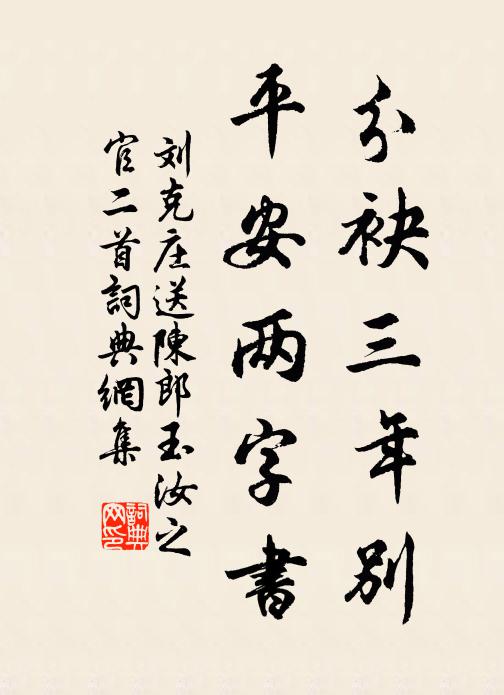 分袂三年别
平安两字書
刘克庄送陳郎玉汝之
官二首詞典網集
詞典
网印